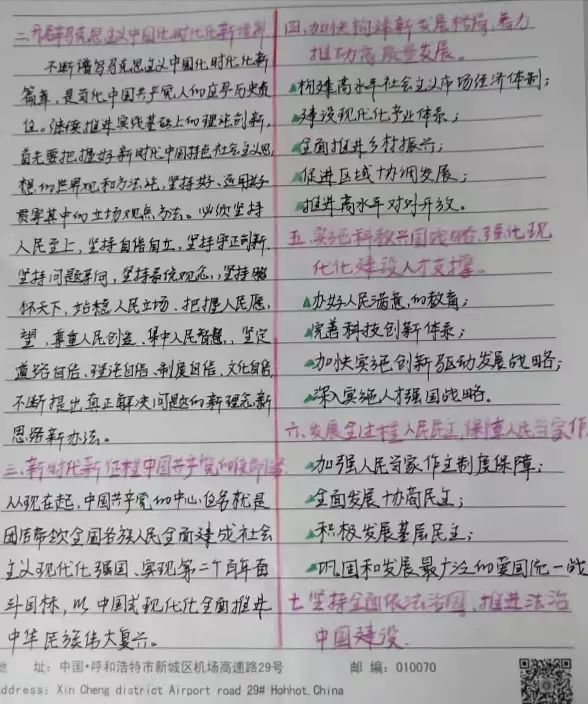 二、开辟马克思主义中国化时代化新境界
不断谱写马克思主义中国化时代化新
篇章，是当代中国共产党人的庄严历史责
任。继续推进实践基础上的理论创新，
首先要把握好新时代中国特色社会主义思
想的世界观和方法论，坚持好、运用好
贯穿其中的立场观点方法。必须坚持
人民至上，坚持自信自立，坚持守正创新，
坚持问题导向，坚持系统观念，坚持胸
怀天下，站稳人民立场、把握人民愿
望，尊重人民创造，集中人民智慧，坚定
道路自信、理论自信、制度自信、文化自信，
不断提出真正解决问题的新理念新
思路新办法。
三、新时代新征程中国共产党的使命任务
从现在起，中国共产党的中心任务就是
团结带领全国各族人民全面建成社会
主义现代化强国、实现第二个百年奋
斗目标，以中国式现代化全面推进
中华民族伟大复兴。
四、加快构建新发展格局，着力
推动高质量发展。
构建高水平社会主义市场经济体制；
建设现代化产业体系；
全面推进乡村振兴；
促进区域协调发展；
推进高水平对外开放。
五、实施科教兴国战略、强化现
代化建设人才支撑。
办好人民满意的教育；
完善科技创新体系；
加快实施创新驱动发展战略；
深入实施人才强国战略。
六、发展全过程人民民主，保障人民当家作
加强人民当家作主制度保障；
全面发展协商民主；
积极发展基层民主；
巩固和发展最广泛的爱国统一战
七、坚持全面依法治国，推进法治
中国建设
址：中国·呼和浩特市新城区机场高速路29号 邮编：010070
ddress: Xin Cheng district Airport road 29# Hohhot, China